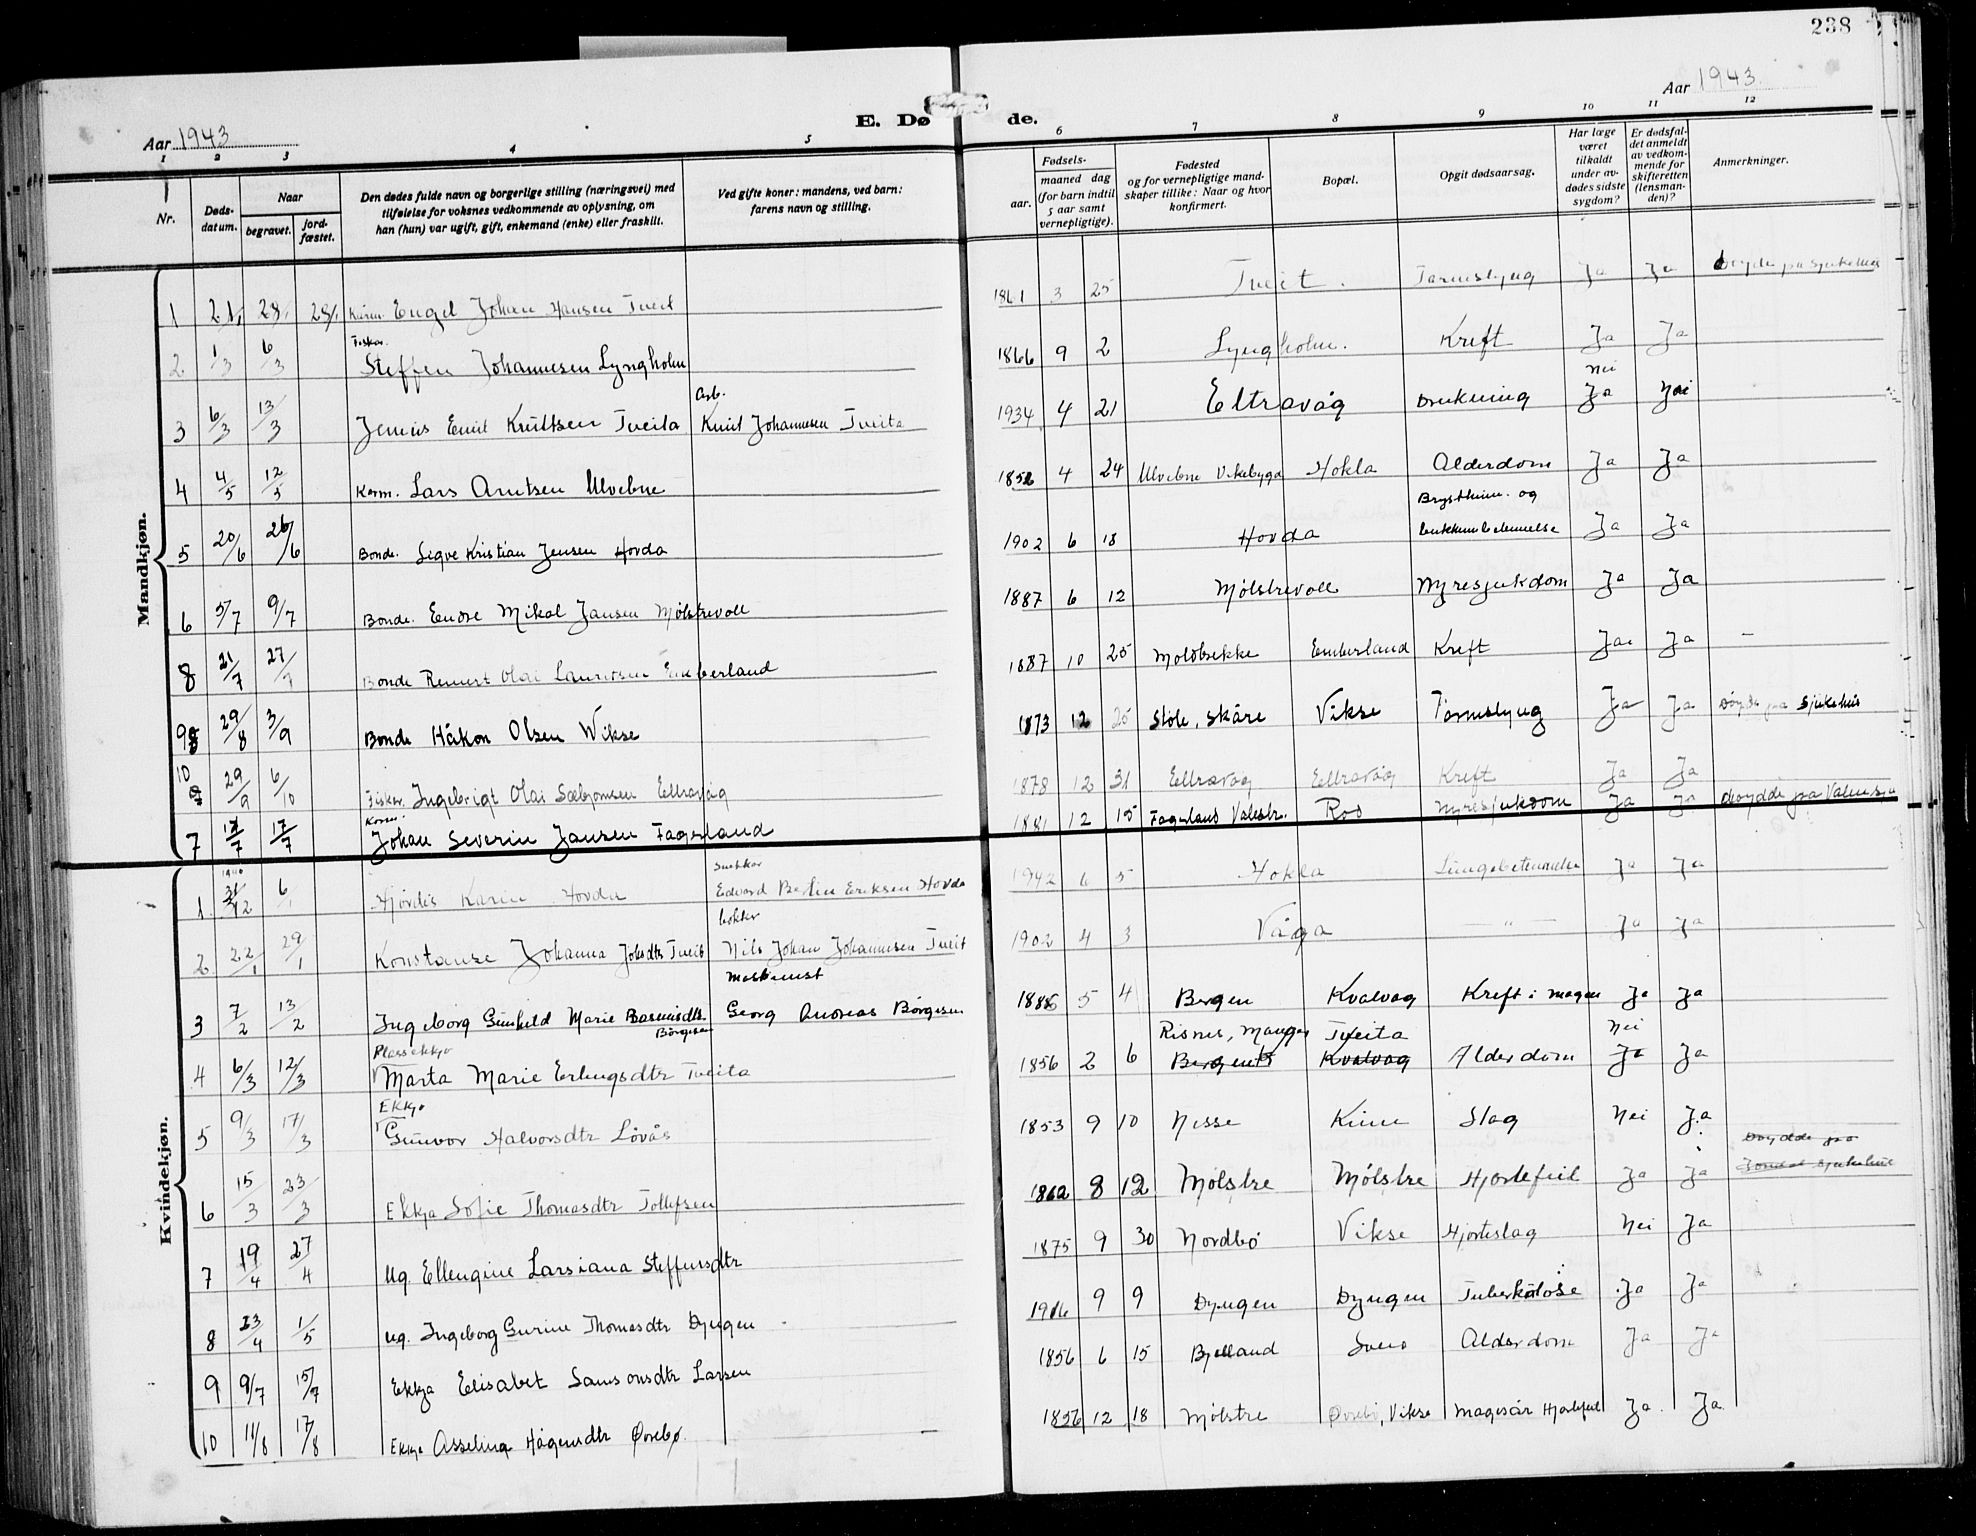 238
Aar 1943
Aar 1943.
E. Dø de.
1 2 3 4 5 6 7 8 9 10 11 12
Nr.
Døds-datum.
Naar
begravet.
jord-fæstet.
Den dødes fulde navn og borgerlige stilling (næringsvei) med
tilføielse for voksnes vedkommende av oplysning, om
han (hun) var ugift, gift, enkemand (enke) eller fraskilt.
Ved gifte koner: mandens, ved barn:
farens navn og stilling.
Fødsels-
aar.
maaned dag
(for barn indtil
5 aar samt
vernepligtige).
Fødested
og for vernepligtige mand-
skaper tillike: Naar og hvor
konfirmert.
Bopæl.
Opgit dødsaarsag.
Har læge
været
tilkaldt
under av-
dødes sidste
sygdom?
Er dødsfal-
det anmeldt
av vedkom-
mende for
skifteretten
(lensman-
den)?
Anmerkninger.
Mandkjøn.
1 Engel Johan Hansen Tveit 1861 3 25 Tveit. Tarmslyng Ja Ja
2 1/3 6/3 Fiskar. Steffen Johannesen Lyngholm 1866 9 2 Lyngholm. Kreft Ja Ja
3 6/3 13/3 Emil Knutsen Tveita Arb. Knut Johannesen Tveita 1934 4 21 Eltravåg Drukning Nei Ja Nei
4 4/5 12/5 Larm. Lars Arntsen Ulvebne 4 24 Ulvebne Vikebygd Hokla Alderdom Ja Ja
5 20/6 26/6 Bonde. Sigve Kristian Jensen Hovda 1902 6 18 Hovda Brysthinne- og Ja Ja
6 5/7 9/7 Bonde. Endre Mikal Jansen Mølstrevoll 1887 6 12 Mølstrevoll Nyresjukdom Ja Ja
8 21/7 27/7 Bonde Olai Lauritsen Emberland 1887 10 25 Moldbrekke Emberland Kreft Ja Ja –
9 29/8 3/9 Bonde Håkon Olsen Wikse 1873 12 25 Støle, Skåre Vikse Tarmslyng Ja Ja Døyde på Sjukehus
10 29/9 6/10 Fiskar. Ingebrigt Olai Sæbjørnsen Eltravåg 1878 12 31 Eltravåg Eltravåg Kreft Ja Ja
7 17/7 Johan Severin Jansen Fagerland 1881 12 15 Fagerland Valestr. Nyresjukdom Ja Ja
Kvindekjøn.
1 31/12 6/1 Hjørdis Karin Hovda Snekker Edvard Bertin Eriksen Hovda 1942 6 5 Hokla Lungebetennelse Ja Ja
2 22/1 29/1 Konstanse Johanna Johsdtr Tveit Nils Johan Johannesen Tveit 1902 4 3 Våga — " — Ja Ja
3 7/2 13/2 Ingeborg Gunhild Marie Rasmusdtr Børgesen Maskinist Georg Andreas Børgesen 5 4 Bergen Kvalvåg Kreft i magen Ja Ja
4 6/3 12/3 Plassekkja Marta Marie Erlingsdtr Tveita 1856 2 6 Risnes, Manger Bergen Tveita Kvalvåg Alderdom Nei Ja Ja
5 9/3 17/3 Ekkja Gunvor Halvorsdtr Løvås 1853 9 10 Nesse Kinn Slag Nei Ja
6 15/3 23/3 Ekkja Sofie Thomasdtr Tollefsen 1862 8 12 Mølstre Mølstre Hjartefeil Ja Ja Døydde på sjukehus
7 19/4 27/4 Ug. Ellengine Larsiana Steffensdtr 1875 9 30 Nordbø Vikse Hjarteslag Nei Ja
8 23/4 1/5 Ug. Ingeborg Gurine Thomasdtr Dyngen 1916 9 9 Dyngen Dyngen Tuberkulose Ja Ja
9 9/7 15/7 Ekkja Elisabet Samsonsdtr Larsen 1856 6 15 Bjelland Sveio Alderdom Ja Ja
10 11/8 17/8 Ekkja Asseline Hågensdtr Øvrebø. 1856 12 18 Mølstre Øvrebø, Vikse Magesår Hjartefeil Ja Ja